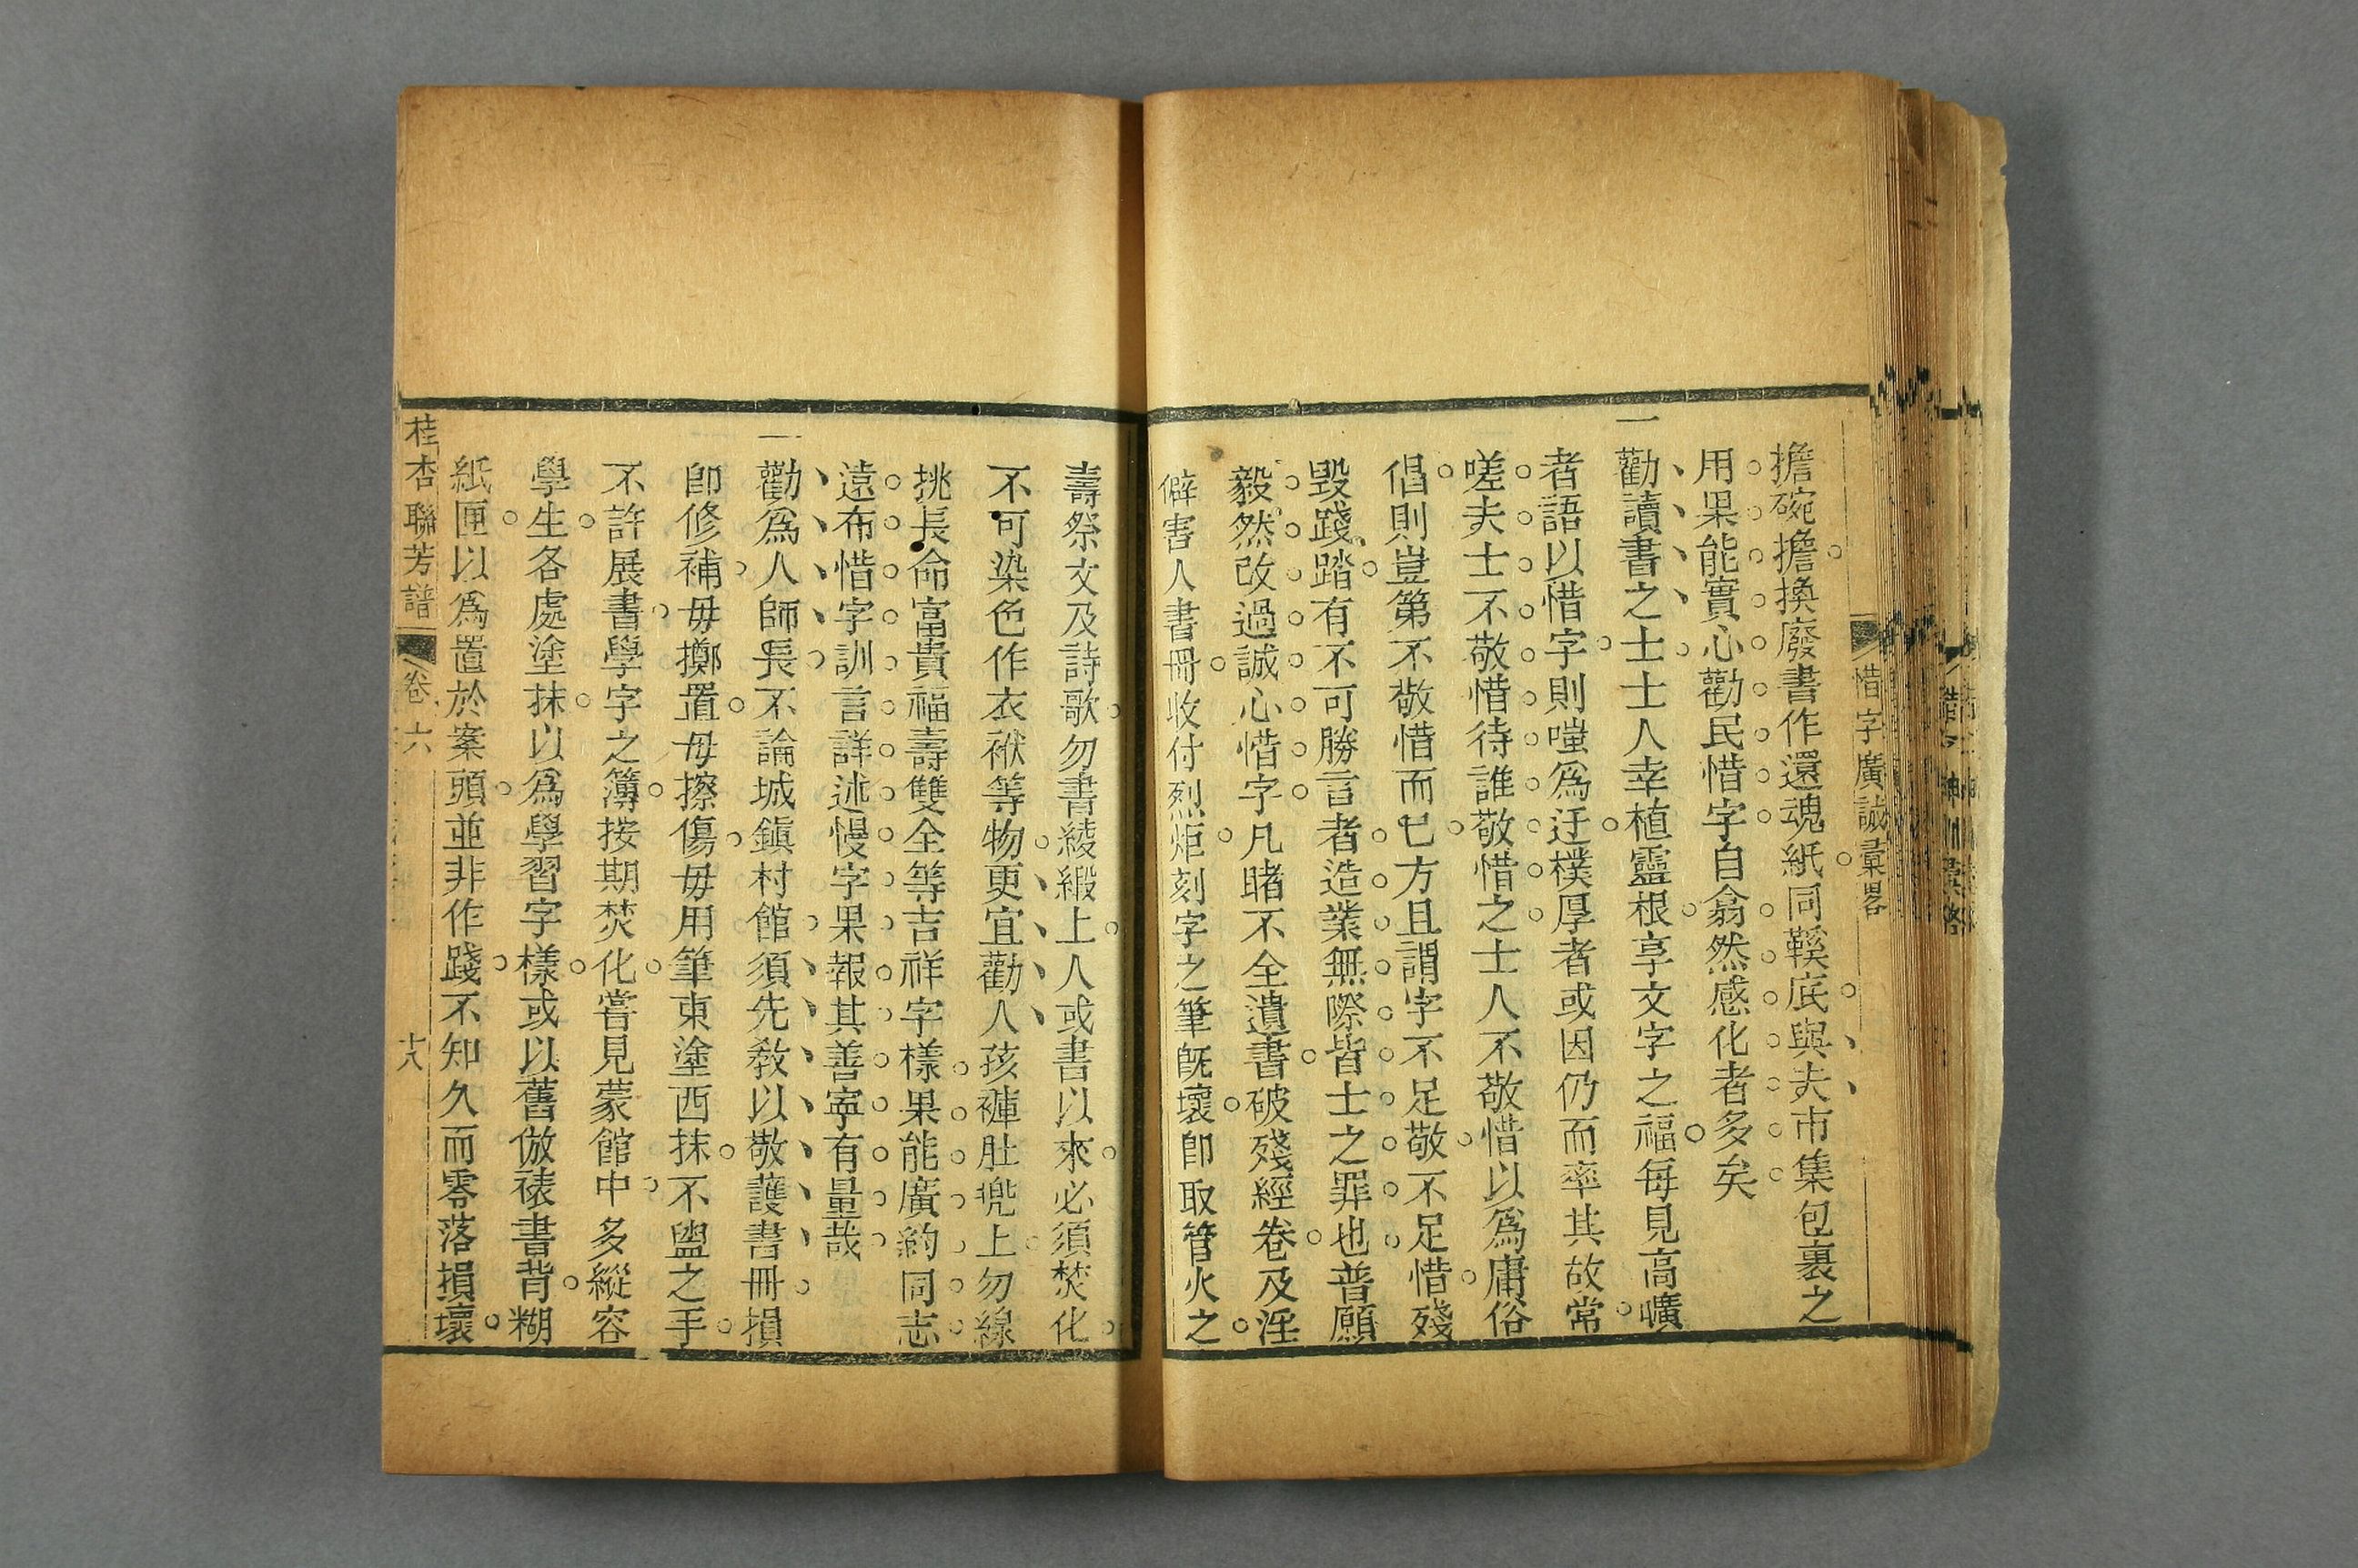 惜字廣誠彙畧
擔碗擔換廢書作還魂紙同鞵底與夫市集包裹之
用果能實心勸民惜字自翕然感化者多矣
一勸讀書之士士人幸植靈根享文字之福每見高曠
者語以惜字則嗤爲迂樸厚者或因仍而率其故常
嗟夫士不敬惜待誰敬惜之士人不敬惜以爲庸俗
倡則豈第不敬惜而已方且謂字不足敬不足惜殘
毀踐踏有不可勝言者造業無際皆士之罪也普願
毅然改過誠心惜字凡睹不全遺書破殘經卷及淫
僻害人書冊收付烈炬刻字之筆既壞卽取管火之
壽祭文及詩歌勿書綾緞上人或書以來必須焚化
不可染色作衣袱等物更宜勸人孩褲肚兜上勿線
挑長命富貴福壽雙全等吉祥字樣果能廣約同志
遠布惜字訓言詳述慢字果報其善寧有量哉
一勸爲人師長不論城鎭村館須先敎以敬護書冊損
卽修補毋擲置毋擦傷毋用筆東塗西抹不盥之手
不許展書學字之簿按期焚化嘗見蒙館中多縱容
學生各處塗抹以爲學習字樣或以舊倣裱書背糊
紙匣以爲置於案頭並非作踐不知久而零落損壞
桂杏聯芳譜 卷六 十八